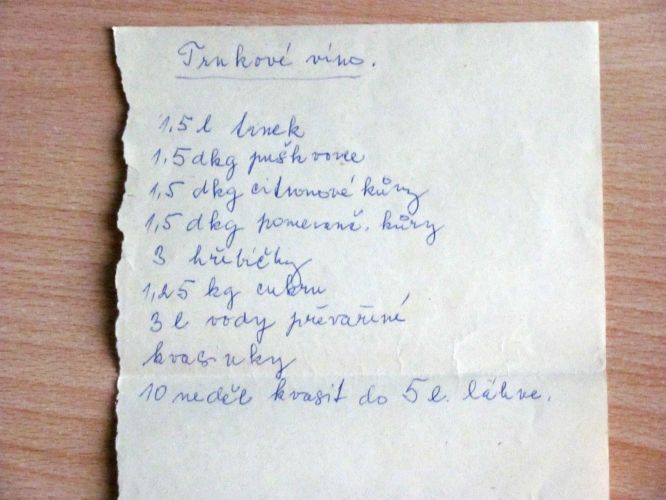 Trnkové víno.
1,5 l trnek
1,5 dkg pušk vorce
1,5 dkg citronové kůry
1,5 dkg pomeranč. kůry
3 hřebíčky
1,25 kg cukru
3 l vody převařené
kvasinky
10 neděl kvasit do 5 l. láhve.